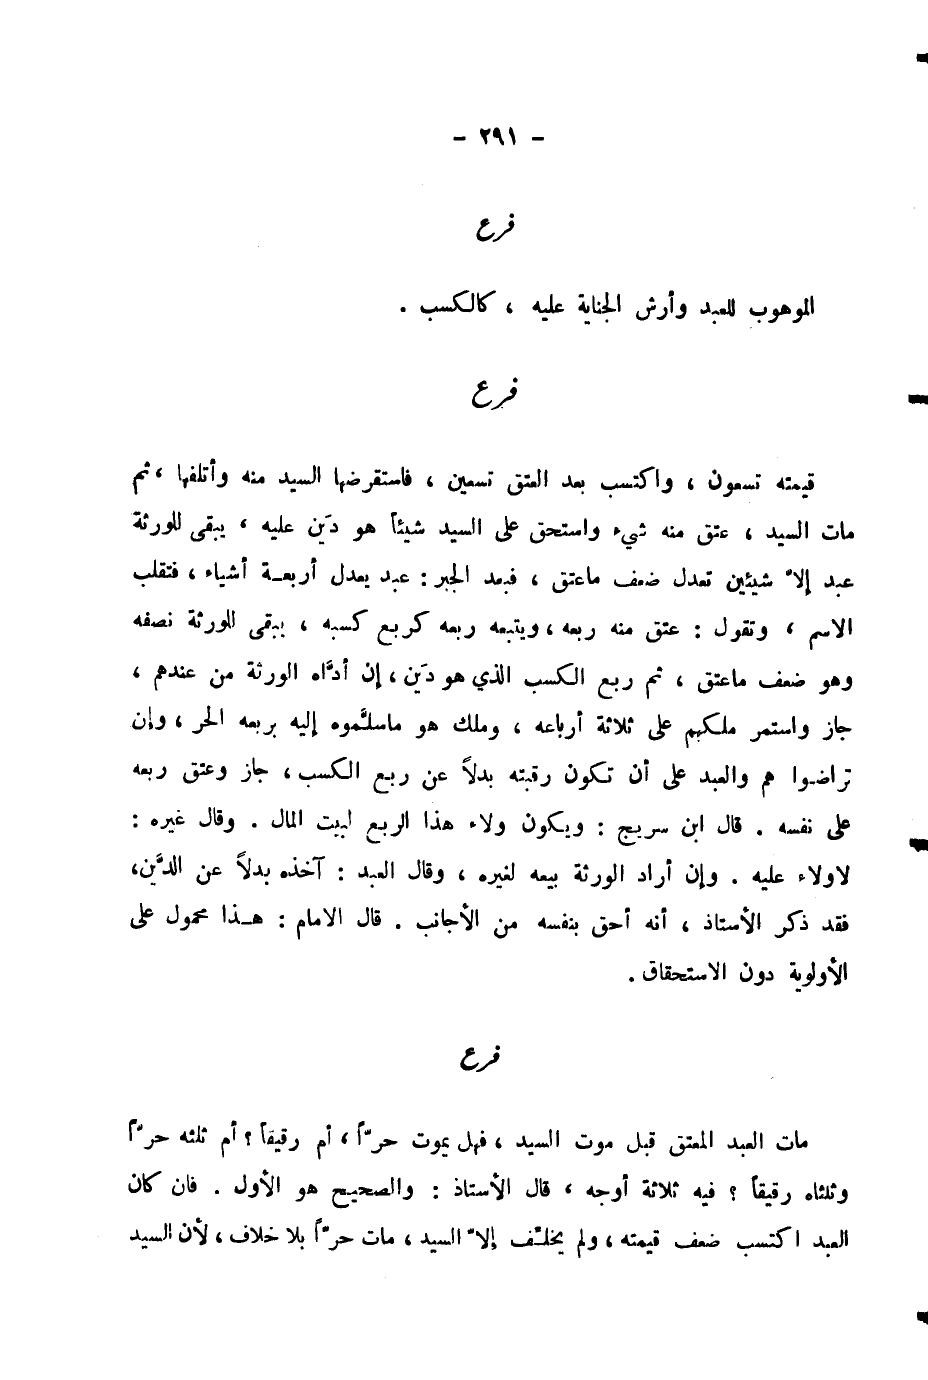 - ٢٩١ -
فرع
الموهوب للعبد وأرش الجناية عليه ، كالكسب .
فرع
قيمته تسعون ، واكتسب بعد العتق تسعين ، فاستقرضها السيد منه وأتلفها ، ثم
مات السيد ، عتق منه شيء واستحق على السيد شيئاً هو دَين عليه ، يبقى للورثة
عبد إلاَّ شيئين تعدل ضعف ماعتق ، فبعد الجبر : عبد يعدل أربعـة أشياء ، فتقلب
الاسم ، وتقول : عتق منه ربعه ، ويتبعه ربعه كربع كسبه ، يبقى للورثة نصفه
وهو ضعف ماعتق ، ثم ربع الكسب الذي هو دَين ، إن أدَّاه الورثة من عندهم ،
جاز واستمر ملكهم على ثلاثة أرباعه ، وملك هو ماسلَّموه إليه بربعه الحر ، وإن
تراضوا هم والعبد على أن تكون رقبته بدلاً عن ربع الكسب ، جاز وعتق ربعه
على نفسه . قال ابن سريج : ويكون ولاء هذا الربع لبيت المال . وقال غيره :
لاولاء عليه . وإن أراد الورثة بيعه لغيره ، وقال العبد : آخذه بدلاً عن الدَّين،
فقد ذكر الأستاذ ، أنه أحق بنفسه من الأجانب . قال الامام : هـذا محمول على
الأولوية دون الاستحقاق .
فرع
مات العبد المعتق قبل موت السيد ، فهل يموت حرّاً ، أم رقيقاً ؟ أم ثلثه حرّاً
وثلثاه رقيقاً ؟ فيه ثلاثة أوجه ، قال الأستاذ : والصحيح هو الأول . فان كان
العبد اكتسب ضعف قيمته ، ولم يخلّف إلاَّ السيد ، مات حرّاً بلا خلاف ، لأن السيد